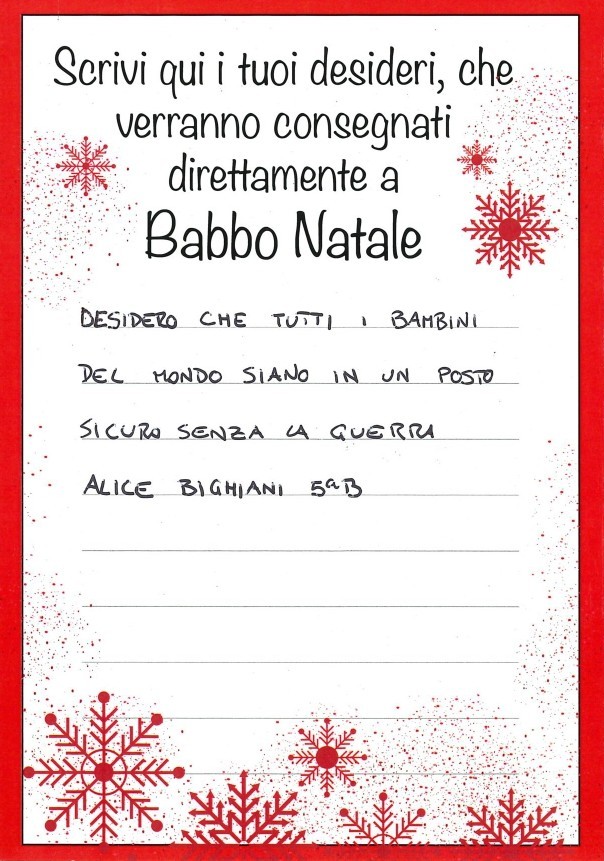 Scrivi qui i tuoi desideri, che
verranno consegnati
direttamente a
Babbo Natale
DESIDERO CHE TUTTI I BAMBINI
DEL MONDO SIANO IN UN POSTO
SICURO SENZA LA GUERRA
ALICE BIGHIANI 5ªB